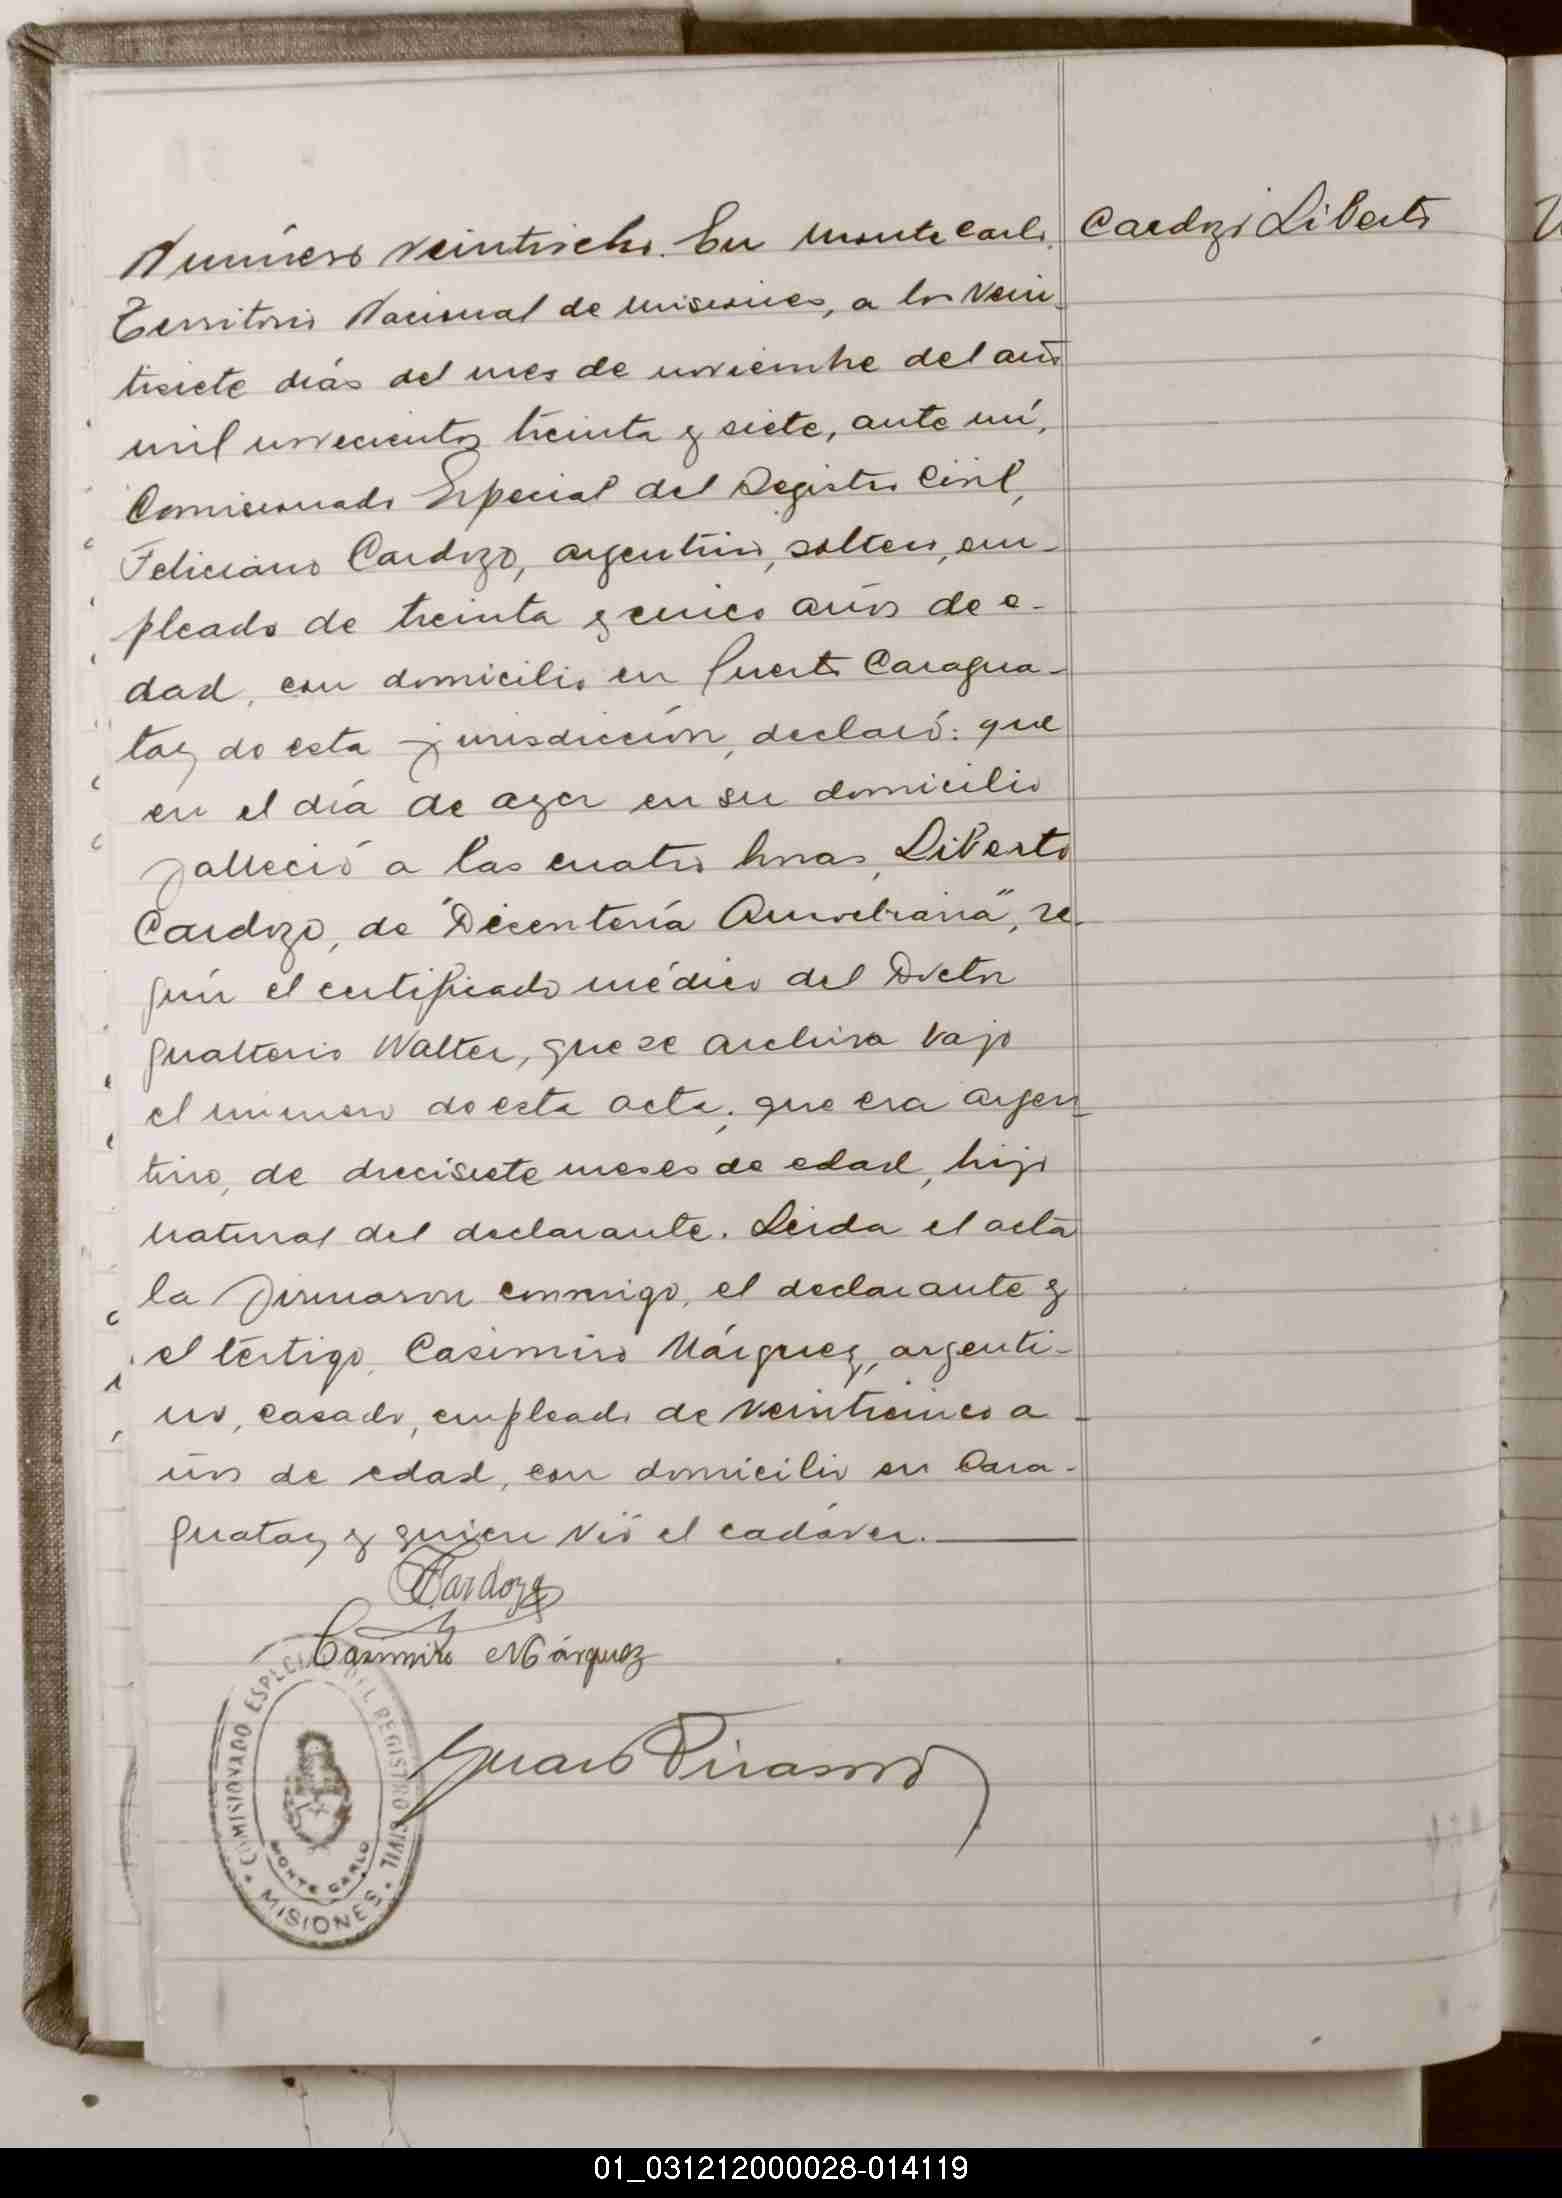 Número veintiocho. En Monte Carlo,
Cardozo Liberto
Territorio Nacional de Misiones, a los vein-
tisiete días del mes de noviembre del año
mil novecientos treinta y siete, ante mí,
Comisionado Especial del Registro Civil,
Feliciano Cardozo, argentino, soltero, em-
pleado de treinta y cinco años de e-
dad, con domicilio en Puerto Caragua-
tay de esta jurisdicción, declaró: que
en el día de ayer en su domicilio
falleció a las cuatro horas, Liberto
Cardozo, de "Disentería Amoebiana", se-
gún el certificado médico del Doctor
Gualterio Walter, que se archiva bajo
el número de esta acta; que era argen-
tino, de diecisiete meses de edad, hijo
natural del declarante. Leída el acta
la firmaron conmigo, el declarante y
el téstigo, Casimiro Márquez, argenti-
no, casado, empleado de veinticinco a-
ños de edad, con domicilio en Cara-
guatay y quien vió el cadáver.
FCardozo
Casimiro Márquez
COMISIONADO ESPECIAL DEL REGISTRO CIVIL
MONTE CARLO
MISIONES
01_031212000028-014119